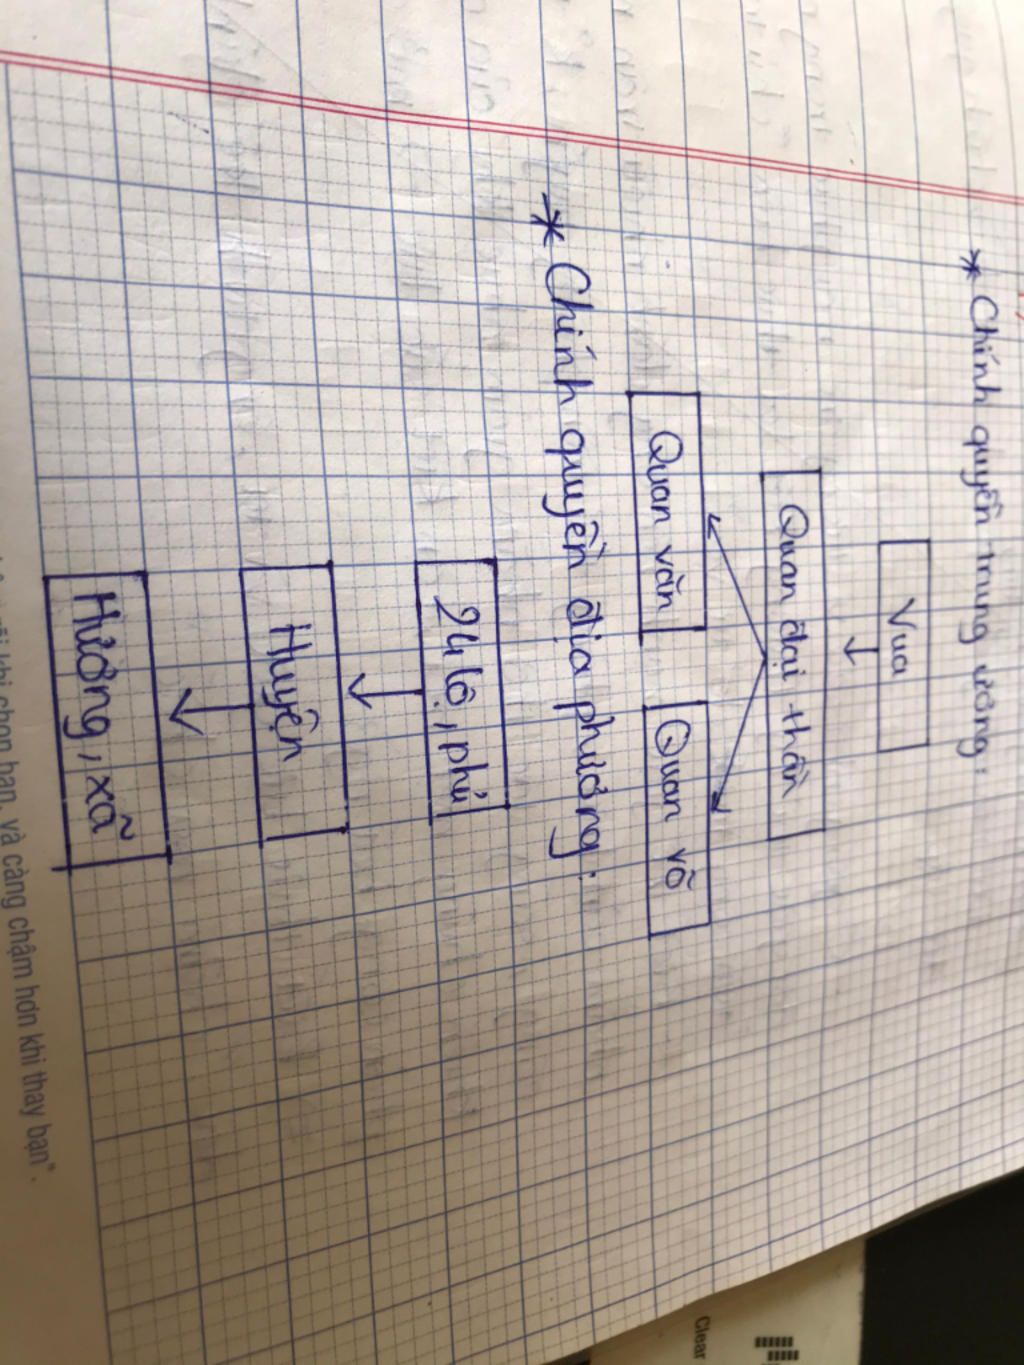 * Chính quyền trung ương:
Vua
Quan đại thần
Quan văn Quan võ
* Chính quyền địa phương:
24 lộ, phủ
Huyện
Hương, xã
khi chọn bạn, và càng chậm hơn khi thay bạn".
Clear